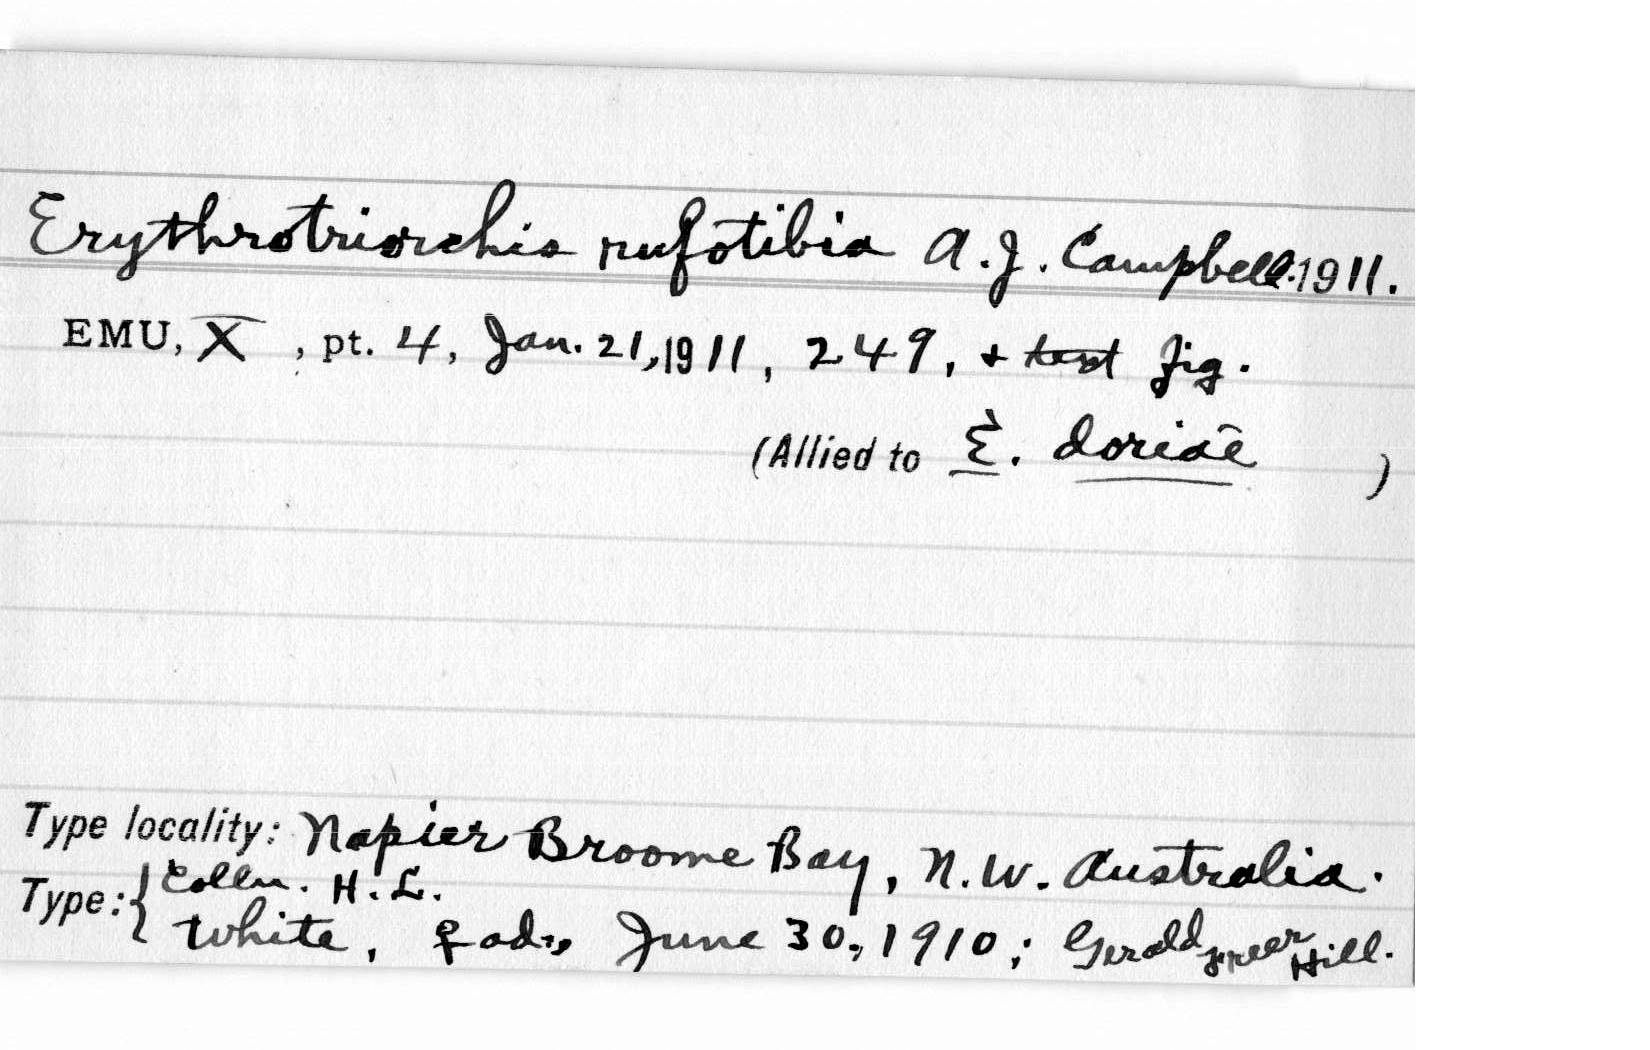 Erythrotriorchis rufotibia A.J. Campbell. 1911.
EMU, X, pt. 4, Jan. 21, 1911, 249, + text fig.
(Allied to E. doriae )
Type locality: Napier Broome Bay, N.W. Australia.
Type: { Colln. H.L.
White, ♀ ad., June 30, 1910; Gerald Freer Hill.